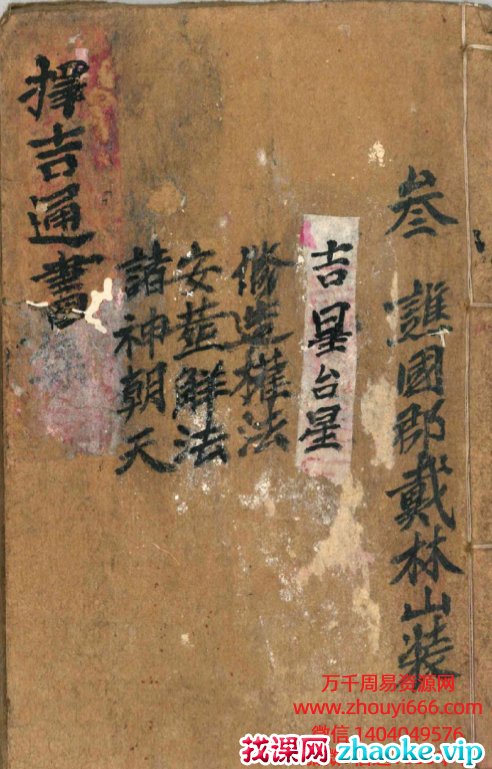 叁 譙國郡戴林山裝
吉星台星
修造權法
安莖鮮法
諸神朝天
擇吉通書
万千周易资源网
www.zhouyi666.com
微信 1404049576
找课网 zhaoke.vip